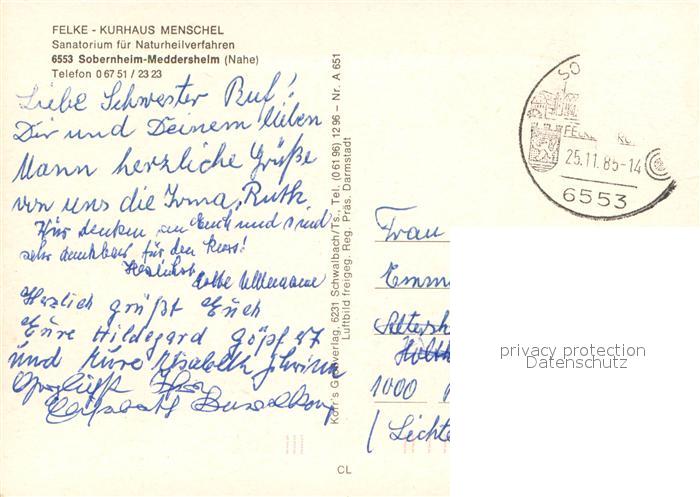 FELKE - KURHAUS MENSCHEL
Sanatorium für Naturheilverfahren
6553 Sobernheim-Meddersheim (Nahe)
Telefon 0 67 51 / 23 23
Liebe Schwester Ruf!
Dir und Deinem lieben
Mann herzliche Grüße
von uns die Irma, Ruth.
Wir denken an Euch und sind
sehr dankbar für den Kurs!
Herzlichst
Herzlich grüßt Euch
Eure Hildegard Göpf
und Eure Elisabeth
Elisabeth
Korr's Geoverlag, 6231 Schwalbach/Ts., Tel. (0 61 96) 12 96 – Nr. A 651
Luftbild freigeg. Reg. Präs. Darmstadt
CL
SO
FELKE KUR
25.11.85-14
6553
Frau
Emm
Altersh
Holth
1000
(Lichte
privacy protection
Datenschutz